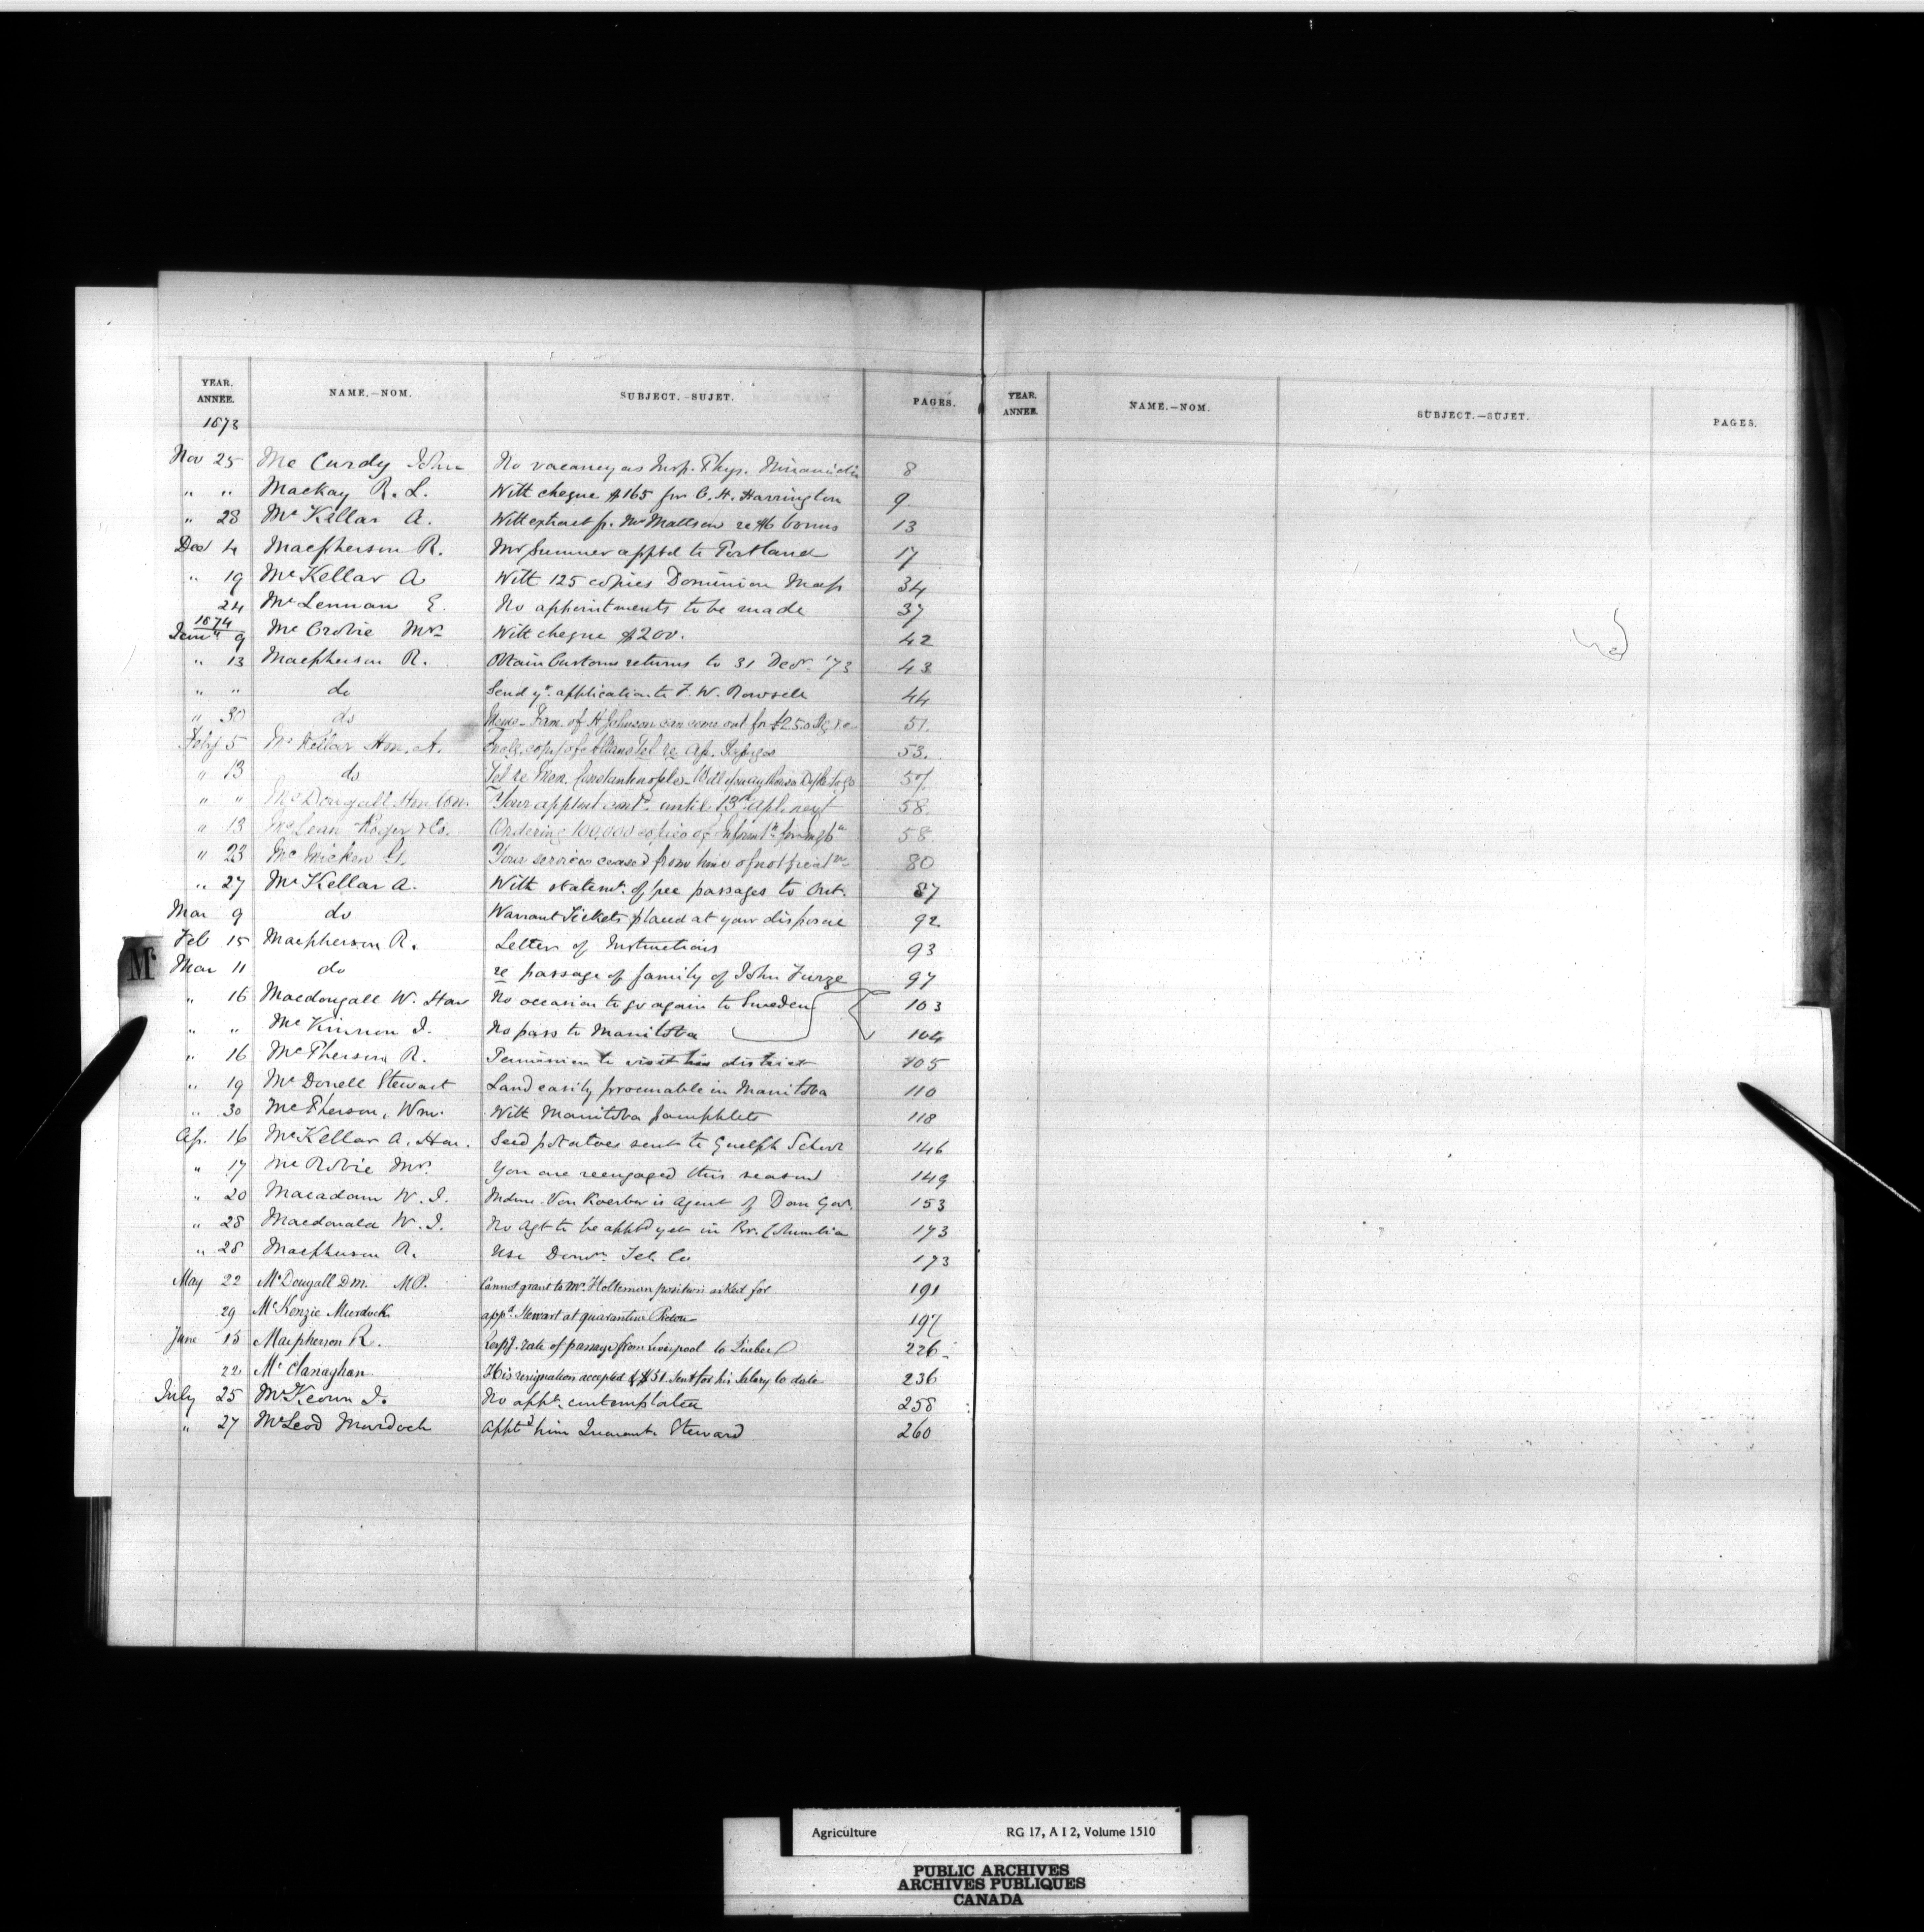 YEAR. ANNEE. NAME.—NOM. SUBJECT.—SUJET. PAGES.
1873
Nov 25 Mc Curdy John No vacancy as Insp. Phys. Miramichi 8
" " Mackay R. L. With cheque $165 for C. H. Harrington 9
" 28 McKellar A. With extract fr. Mr Mattson re $6 bonus 13
Decr 4 Macpherson R. Mr Sumner apptd to Portland 17
" 19 McKellar A With 125 copies Dominion Map 34
24 McLennan E. No appointments to be made 37
1874
Jany 9 Mc Crobie Mr With cheque $200. 42
" 13 Macpherson R. Obtain Customs returns to 31 Decr. '73 43
" " do Send yr. application to F. W. Rowsell 44
" 30 do Fam. of H Johnson can come out for £2.5.0 stg 51.
Feby 5 McKellar Hon. A. copy of Allans Tel. re Ap. 53.
" 13 do Tel re Constantinople 57
" " McDougall Hon Wm. Your apptmt contd. until 13th Apl. next 58.
" 13 McLean Roger & Co. Ordering 100,000 copies of Informtn. for 58
" 23 Mc Micken G. Your services ceased from time of notificatn. 80
" 27 McKellar A. With statemt. of free passages to Ont. 87
Mar 9 do Warrant Tickets placed at your disposal 92
Feb 15 Macpherson R. Letter of Instructions 93
M'
Mar 11 do re passage of family of John Furze 97
" 16 Macdougall W. Hon No occasion to go again to Sweden 103
" " McKinnon J. No pass to Manitoba 104
" 16 McPherson R. Permission to visit his district 105
" 19 McDonell Stewart Land easily procurable in Manitoba 110
" 30 McPherson, Wm. With Manitoba pamphlets 118
Ap. 16 McKellar A. Hon. Seed potatoes sent to Guelph School 146
" 17 McRobie Mr. You are reengaged this season 149
" 20 Macadam W. J. Mdme. Von Koerber is Agent of Dom Gov. 153
" 28 Macdonald W. J. No Agt to be apptd yet in Br. Columbia 173
" 28 Macpherson R. Use Domn. Tel. Co 173
May 22 McDougall Dm. MP. Cannot grant to Mr. Holteman position asked for 191
29 McKenzie Murdock appd. Steward at quarantine Pictou 197
June 15 Macpherson R. Respg. rate of passage from Liverpool to Quebec 226
22 Mc Clanaghan His resignation accepted & $51 sent for his Salary to date 236
July 25 McKeown J. No appt. contemplated 258
" 27 McLeod Murdoch Apptd him Quarant. Steward 260
YEAR. ANNEE. NAME.—NOM. SUBJECT.—SUJET. PAGES.
Agriculture RG 17, A I 2, Volume 1510
PUBLIC ARCHIVES
ARCHIVES PUBLIQUES
CANADA